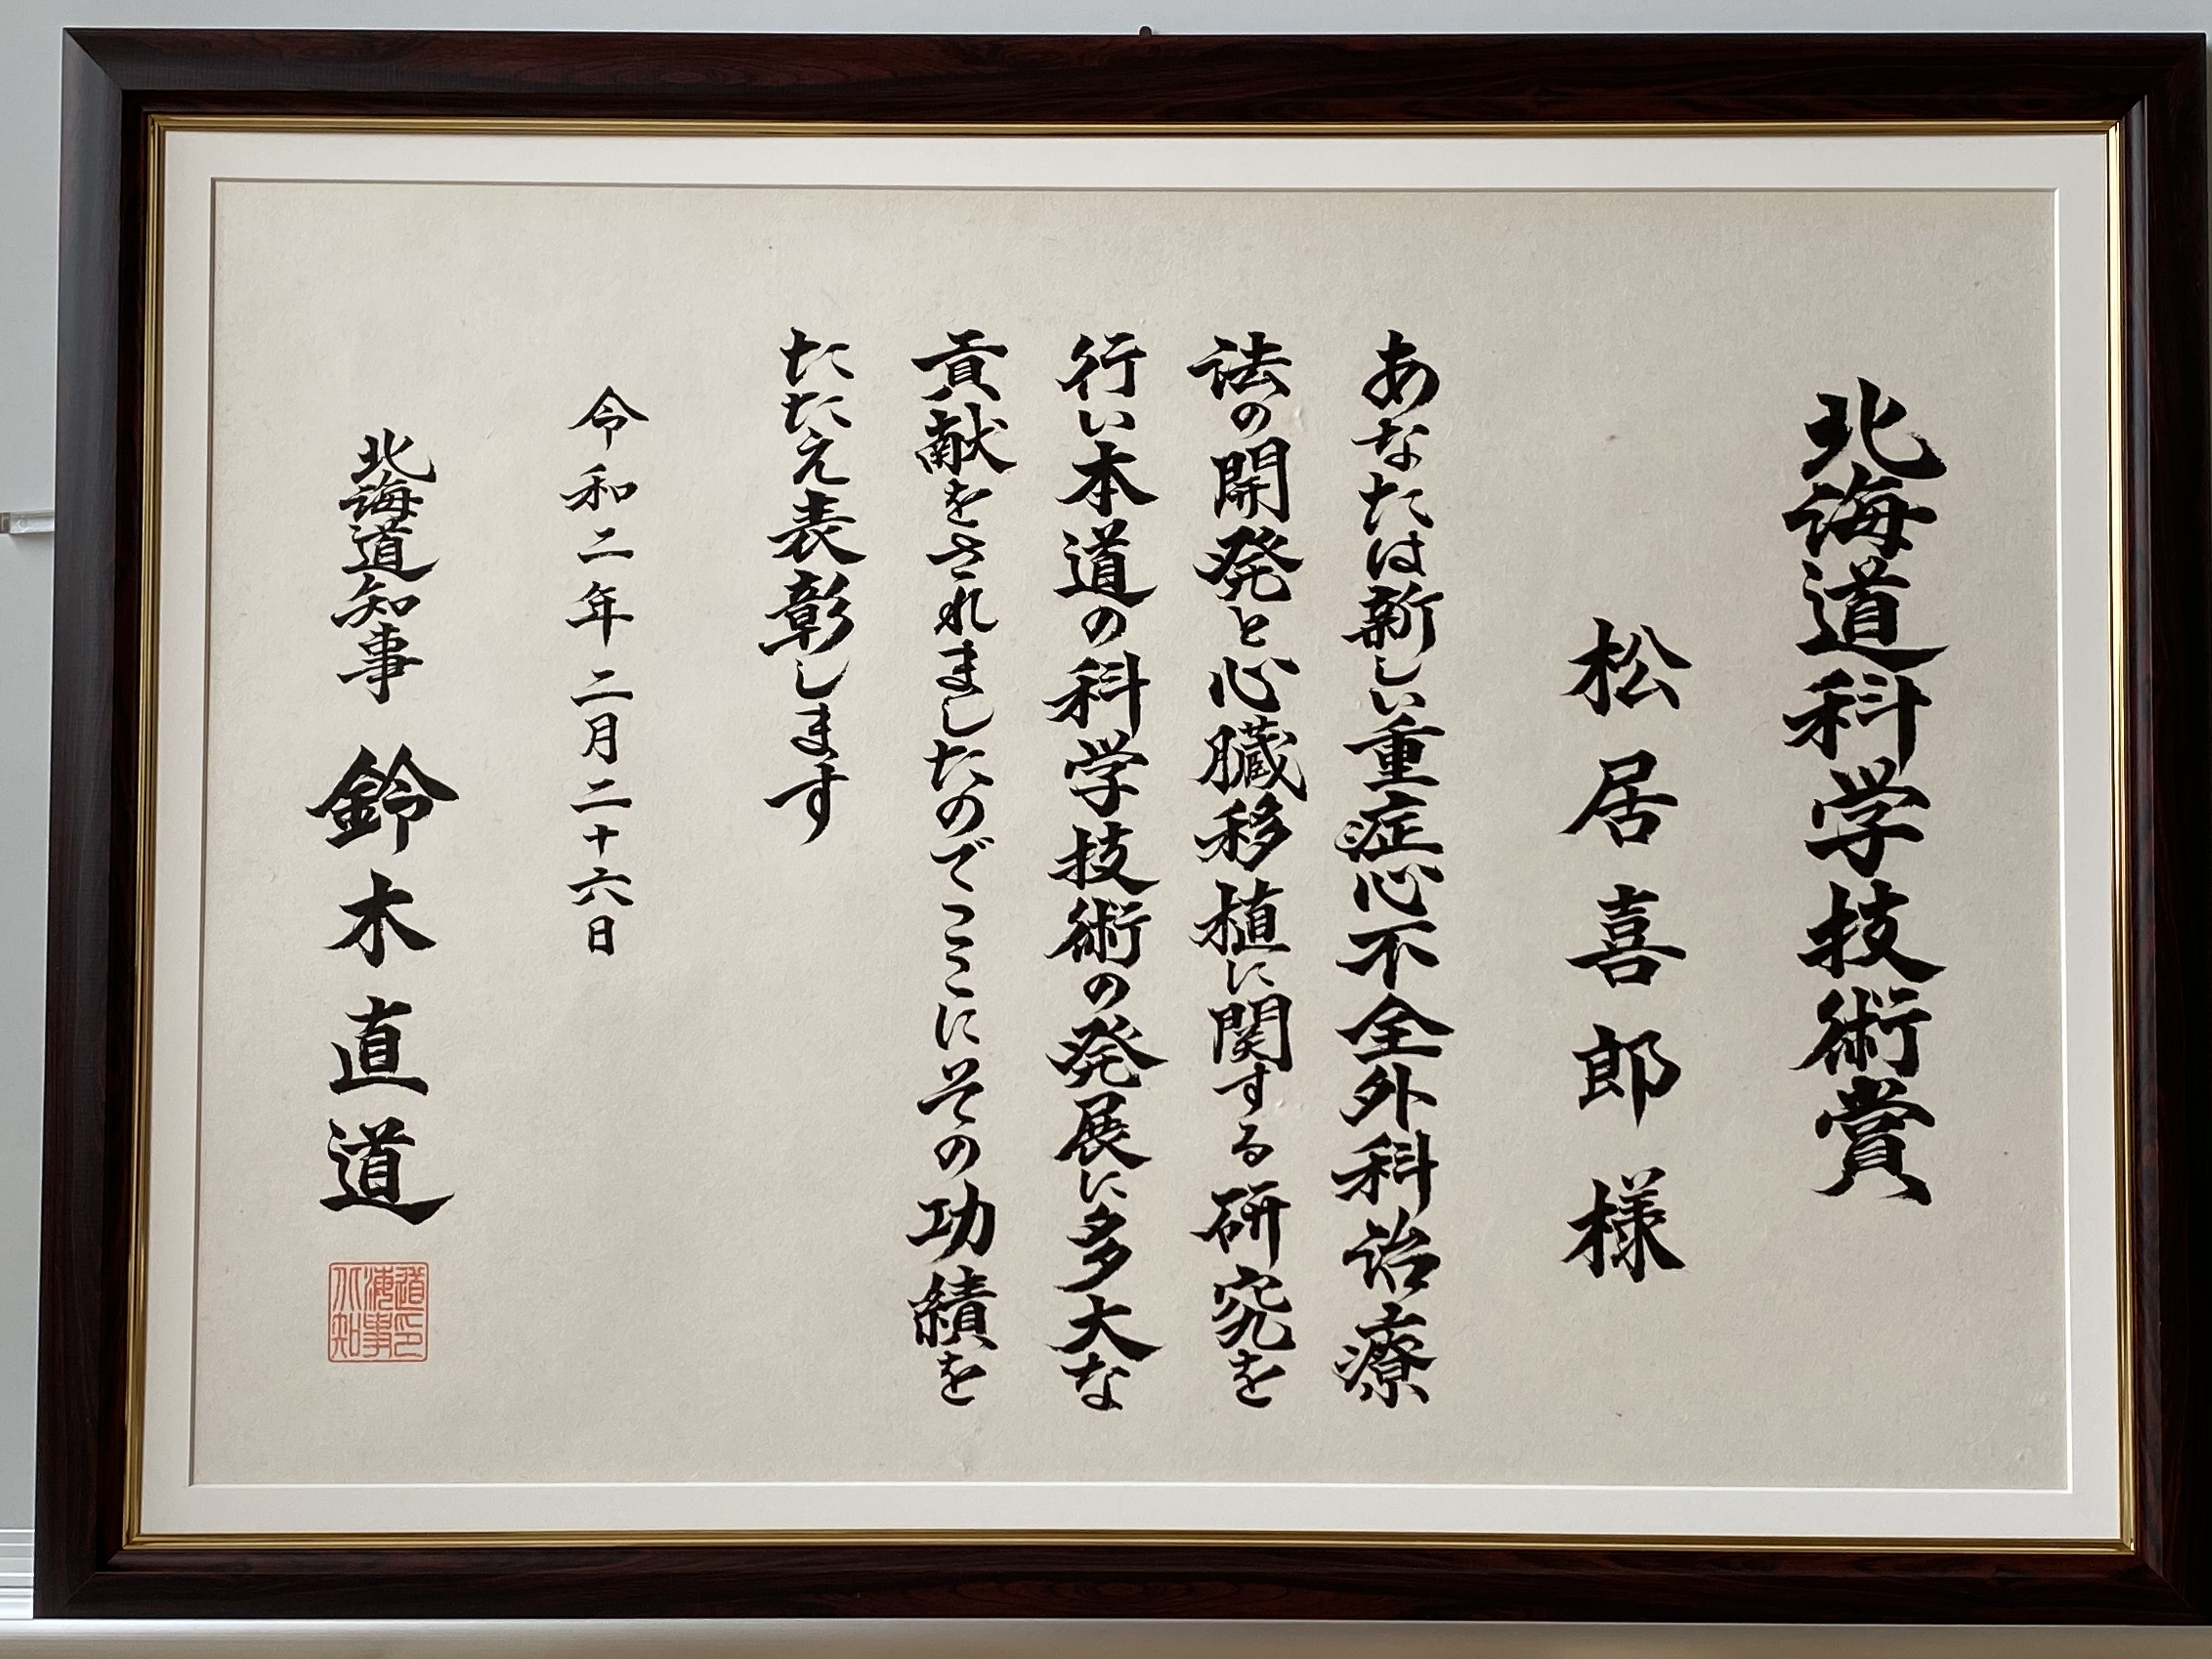 北海道科学技術賞
松居喜郎様
あなたは新しい重症心不全外科治療
法の開発と心臓移植に関する研究を
行い本道の科学技術の発展に多大な
貢献をされましたのでここにその功績を
たたえ表彰します
令和二年二月二十六日
北海道知事 鈴木直道
道印海事北知